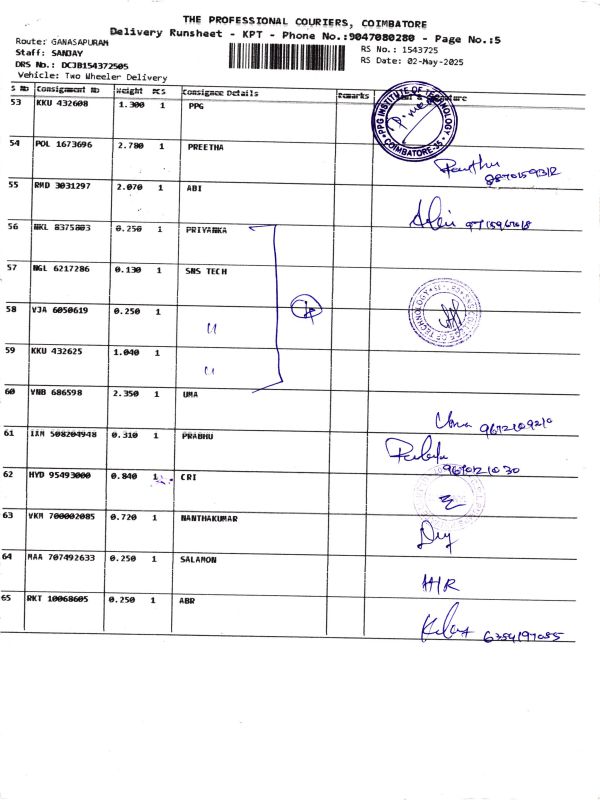 THE PROFESSIONAL COURIERS, COIMBATORE
Delivery Runsheet - KPT - Phone No.:9047080280 - Page No.:5
Route: GANASAPURAM
RS No.: 1543725
Staff: SANJAY
RS Date: 02-May-2025
DRS No.: DCJB154372505
Vehicle: Two Wheeler Delivery
S No Consignment No Weight PCS Consignee Details Remarks
53 KKU 432608 1.300 1 PPG
PPG INSTITUTE OF TECHNOLOGY COIMBATORE-35
54 POL 1673696 2.780 1 PREETHA
55 RMD 3031297 2.070 1 ABI
56 NKL 8375803 0.250 1 PRIYANKA
57 NGL 6217286 0.130 1 SNS TECH
58 VJA 6050619 0.250 1 "
59 KKU 432625 1.040 1 "
60 VNB 686598 2.350 1 UMA
Uma
61 IXM 508204948 0.310 1 PRABHU
62 HYD 95493000 0.840 1 CRI
63 VKM 700002085 0.720 1 NANTHAKUMAR
64 MAA 707492633 0.250 1 SALAMON
65 RKT 10068605 0.250 1 ABR